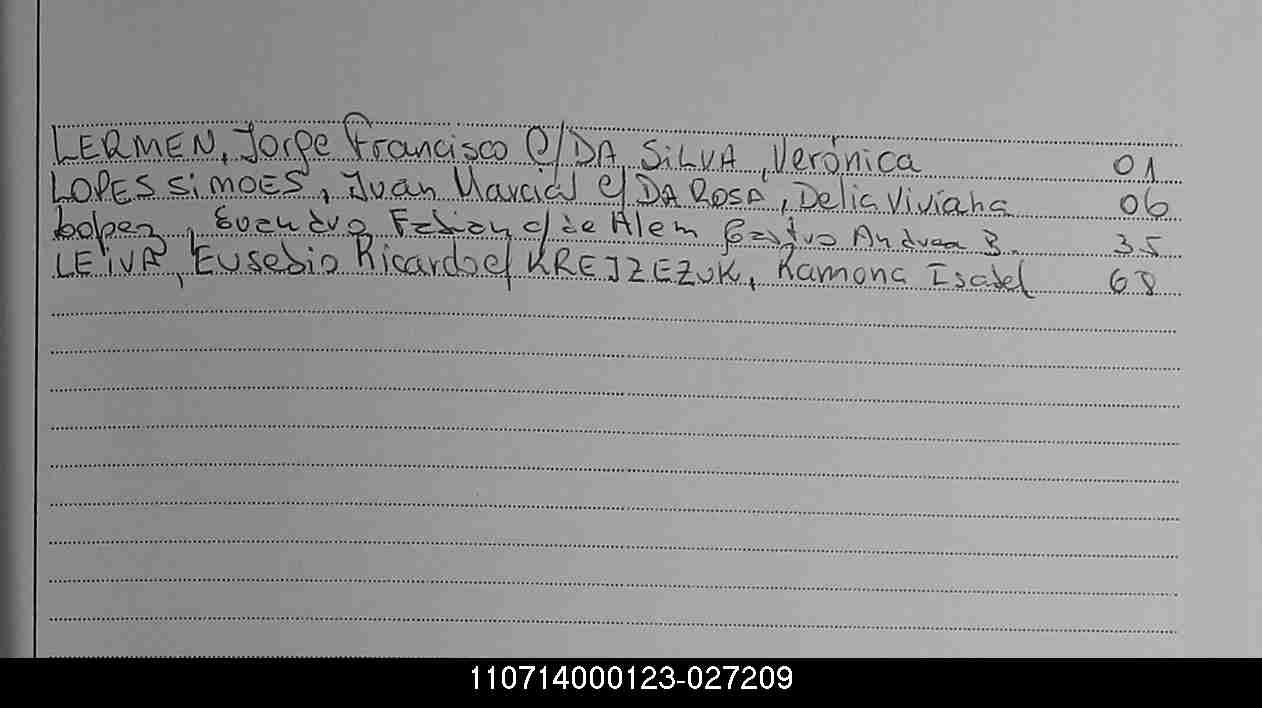 LERMEN, Jorge Francisco C/ DA SiLVA, Verónica 01
LOPES SiMOES, Juan Marcial c/ DA ROSA, Delia Viviana 06
Lopez, Evandro Fabian c/ de Alem Castro Andrea B. 35
LEiVA, Eusebio Ricardo c/ KREJZEZUK, Ramona Isabel 68
110714000123-027209